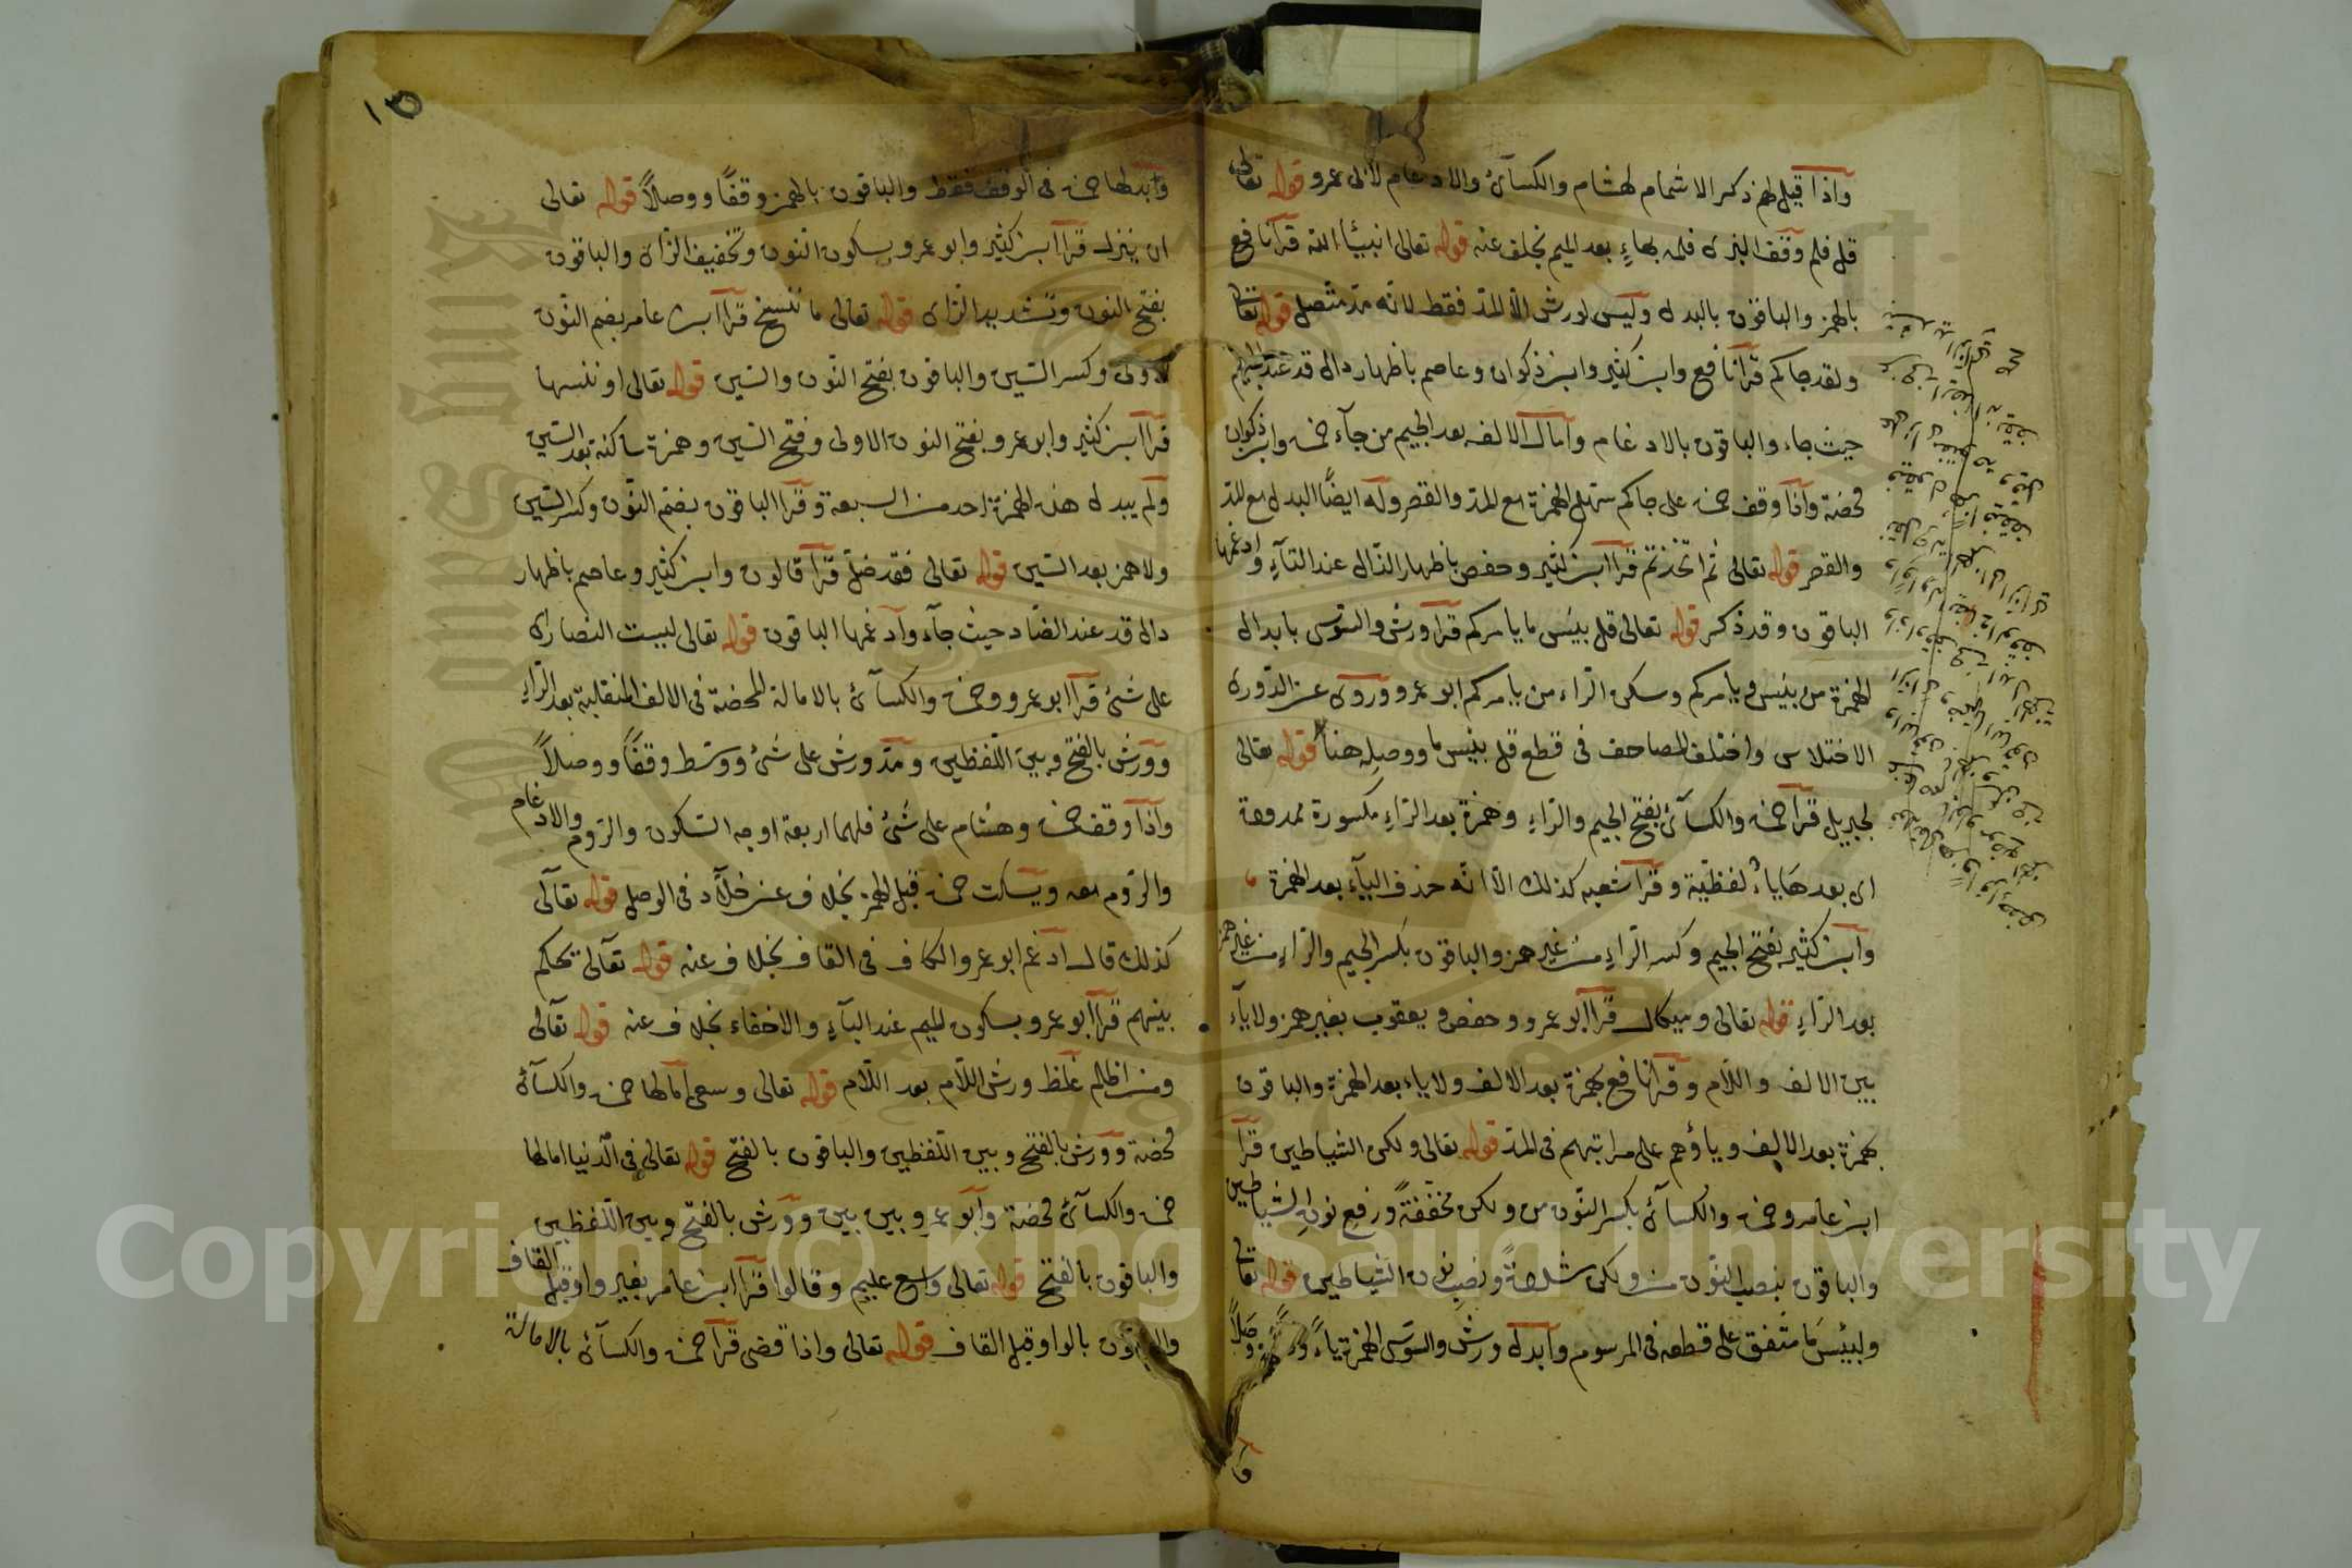 واذا قيل لهم ذكر الاشمام لهشام والكسآئ والادغام لابى عمرو قوله تعالى
قل فلم وقف البزى فلمه بهاءٍ بعد الميم بخلف عنه قوله تعالى انبيٓاء الله قرآ نافع
بالهمز والباقون بالبدل وليس لورش الا المد فقط لانه مد متصل قوله تعالى
ولقد جاكم قرآ نافع وابن كثير وابن ذكوان وعاصم باظهار دال قد عند الجيم
حيث جاء والباقون بالادغام وآمال الالف بعد الجيم من جآء حمزه وابن ذكوان
محضة واذا وقف حمزه على جاكم سهل الهمزة مع المد والقصر وله ايضًا البدل مع المد
والقصر قوله تعالى ثم اتخذتم قرآ ابن كثير وحفص باظهار الذال عند التآءِ وادغمها
الباقون وقد ذكر قوله تعالى قل بئيس ما يامركم قرآ ورش والسوسى بابدال
الهمزة من بئيس و يامركم وسكن الراء من يامركم ابو عمرو وروى عن الدورى
الاختلاس واختلف المصاحف فى قطع قل بئيس ما ووصله هنا قوله تعالى
لجبريل قرآ حمزه والكسآئ بفتح الجيم والراءِ وهمزة بعد الراءِ مكسورة ممدودة
اى بعدها ياءٌ لفظية وقرآ شعبه كذلك الا انه حذف اليآء بعد الهمزة
وآبن كثير بفتح الجيم وكسر الراءِ من غير همز والباقون بكسر الجيم والراءِ من غير همز
بعد الراءِ قوله تعالى وميكال قرآ ابو عمرو وحفص و يعقوب بغير همز ولا يآء
بين الالف واللام وقرآ نافع بهمزة بعد الالف ولا ياء بعد الهمزة والباقون
بهمزة بعد الالف وياؤهم على مراتبهم فى المد قوله تعالى ولكن الشياطين قرآ
ابن عامر وحمزه والكسآئ بكسر النون من ولكن مخففةً ورفع نون الشياطين
والباقون بنصب النون من ولكن مشددةً ونصب نون الشياطين قوله تعالى
ولبئيس ما متفق على قطعه فى المرسوم وآبدل ورش والسوسى الهمزة ياءً وصلاً
١٥
وآبدلها حمزه فى الوقف فقط والباقون بالهمز وقفًا ووصلاً قوله تعالى
ان ينزل قرآ ابن كثير وابو عمرو بسكون النون وتخفيف الزاى والباقون
بفتح النون وتشديد الزاى قوله تعالى ما ننسخ قرآ ابن عامر بضم النون
الاولى وكسر السين والباقون بفتح النون والسين قوله تعالى او ننسها
قرآ ابن كثير وابو عمرو بفتح النون الاولى وفتح السين وهمزة ساكنة بعد السين
ولم يبدل هذه الهمزة احد من السبعة وقرآ الباقون بضم النون وكسر السين
ولا همز بعد السين قوله تعالى فقد ضل قرآ قالون وابن كثير وعاصم باظهار
دال قد عند الضاد حيث جآء وآدغمها الباقون قوله تعالى ليست النصارى
على شئ قرآ ابو عمرو وحمزه والكسآئ بالامالة المحضة فى الالف المنقلبة بعد الراءِ
وورش بالفتح وبين اللفظين ومد ورش على شئ ووسط وقفًا ووصلاً
وآذا وقف حمزه وهشام على شئ فلهما اربعة اوجه السكون والروم والادغام
والروم معه ويسكت حمزه قبل الهمز بخلاف عن خلآد فى الوصل قوله تعآلى
كذلك قال ادغم ابو عمرو الكاف فى القاف بخلاف عنه قوله تعآلى يحكم
بينهم قرآ ابو عمرو بسكون الميم عند البآءِ والاخفاء بخلاف عنه قوله تعآلى
ومن اظلم غلظ ورش اللآم بعد اللآم قوله تعالى وسعى امالها حمزه والكسآئ
محضة وورش بالفتح وبين اللفظين والباقون بالفتح قوله تعالى فى الدنيا امالها
حمزه والكسآئ محضة وآبو عمرو بين بين وورش بالفتح وبين اللفظين
والباقون بالفتح قوله تعالى واسع عليم وقالوا قرآ ابن عامر بغير واو قبل القاف
والباقون بالواو قبل القاف قوله تعالى واذا قضى قرآ حمزه والكسآئ بالامالة
Copyright © King Saud University
King Saud University